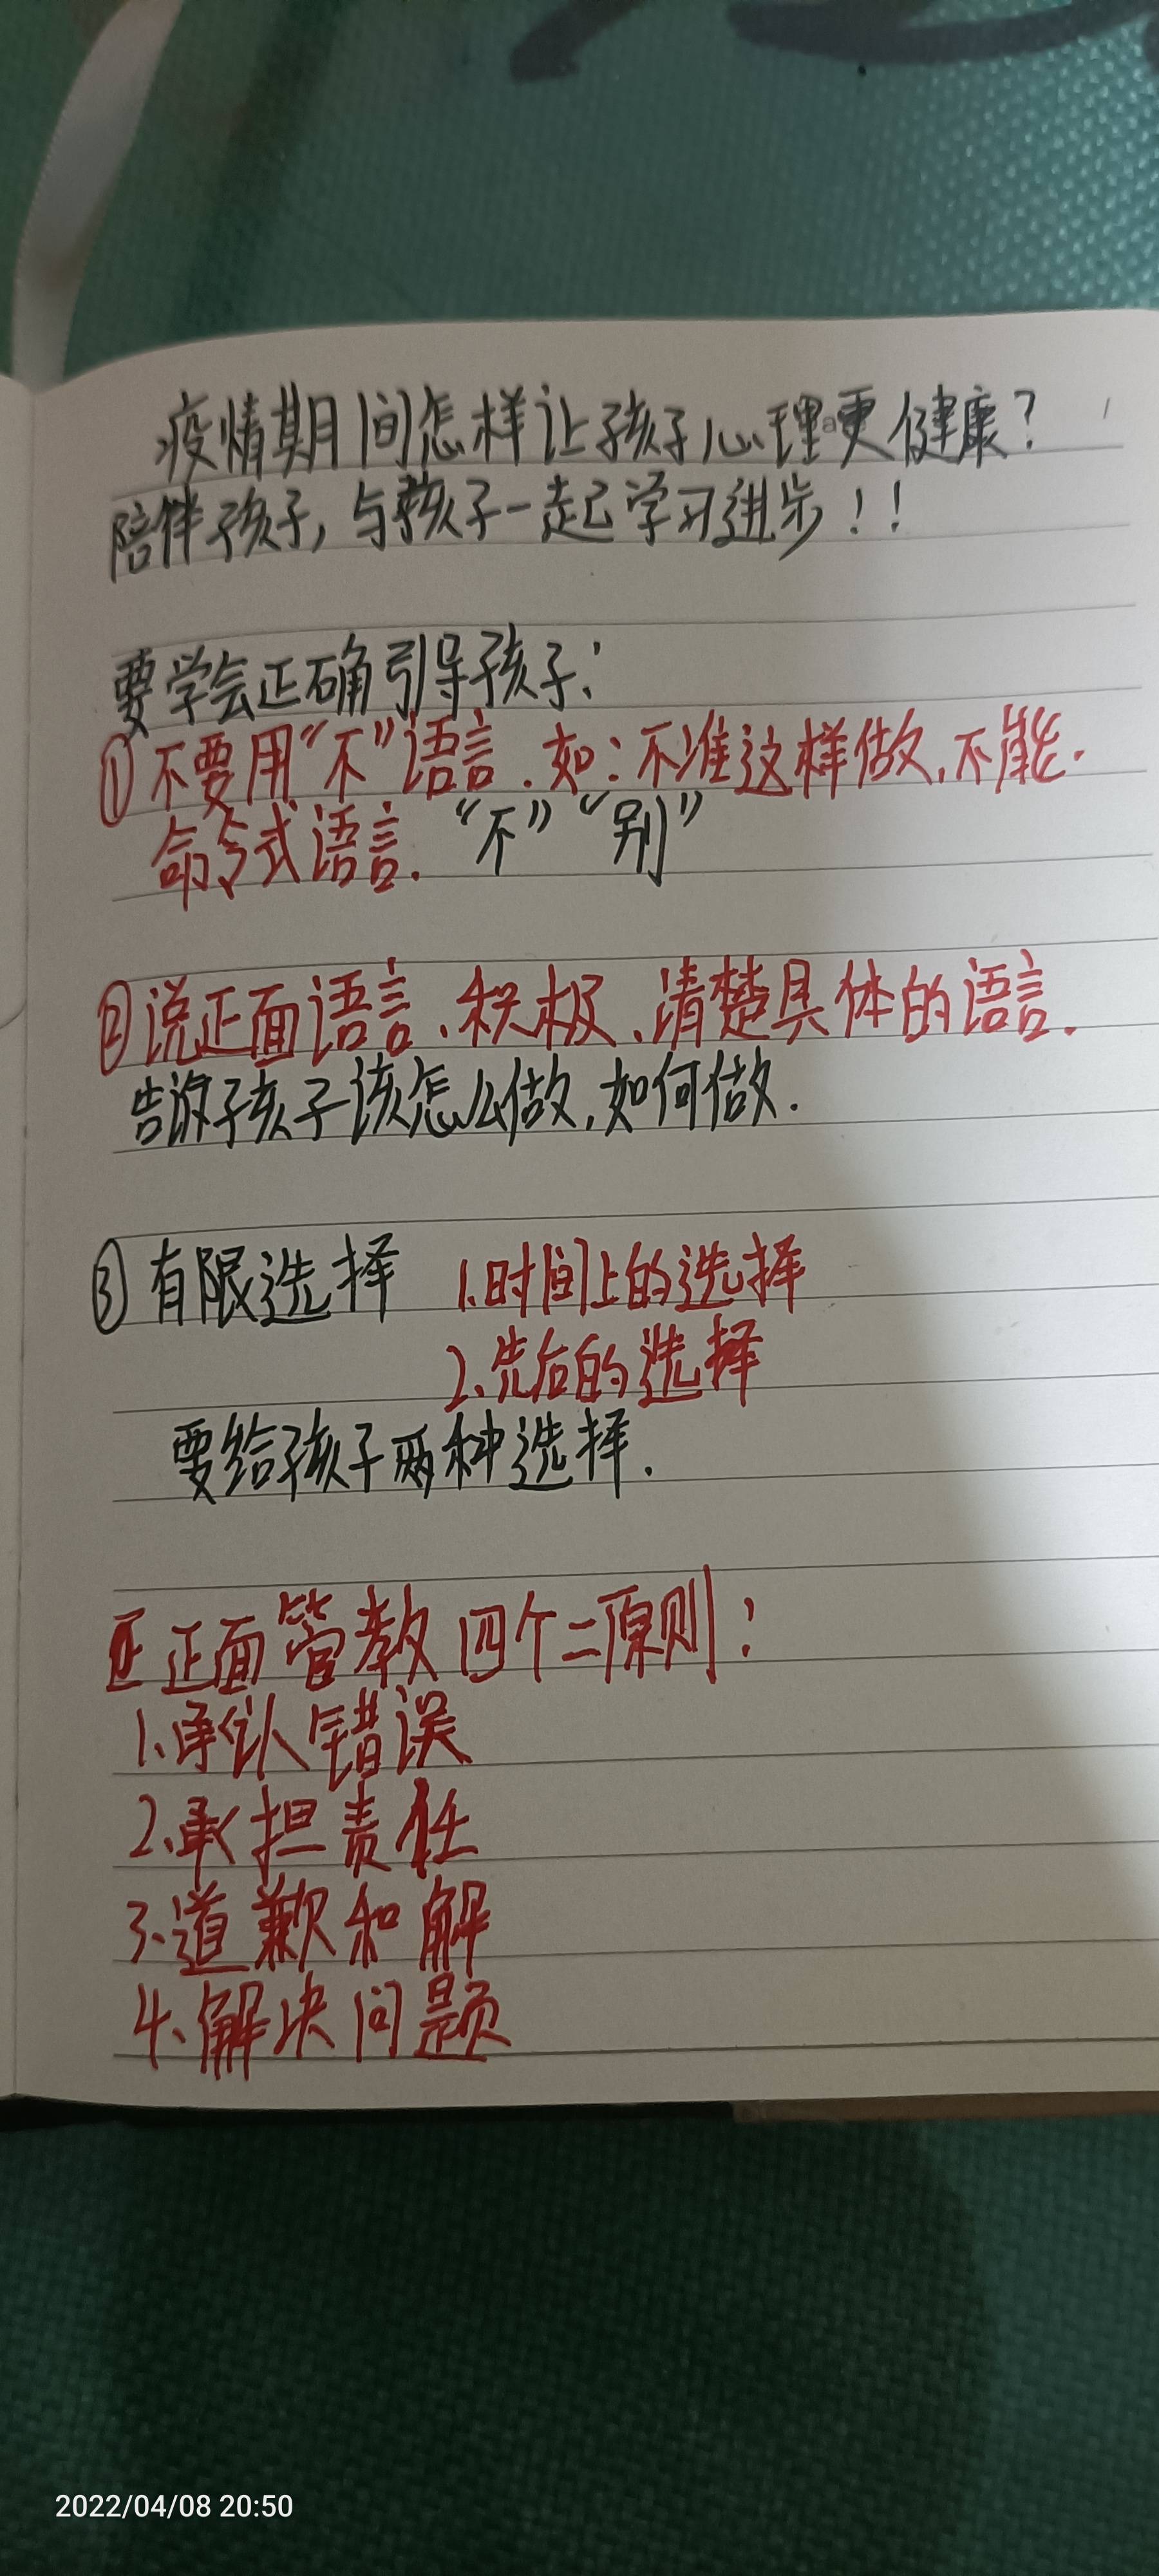 疫情期间怎样让孩子心理更健康?
陪伴孩子,与孩子一起学习进步!!
要学会正确引导孩子:
①不要用“不”语言.如:不准这样做,不能.
命令式语言. “不”“别”
②说正面语言、积极、清楚具体的语言.
告诉孩子该怎么做,如何做.
③有限选择 1.时间上的选择
2、先后的选择
要给孩子两种选择.
正面管教四个二原则:
1、承认错误
2、承担责任
3、道歉和解
4、解决问题
2022/04/08 20:50